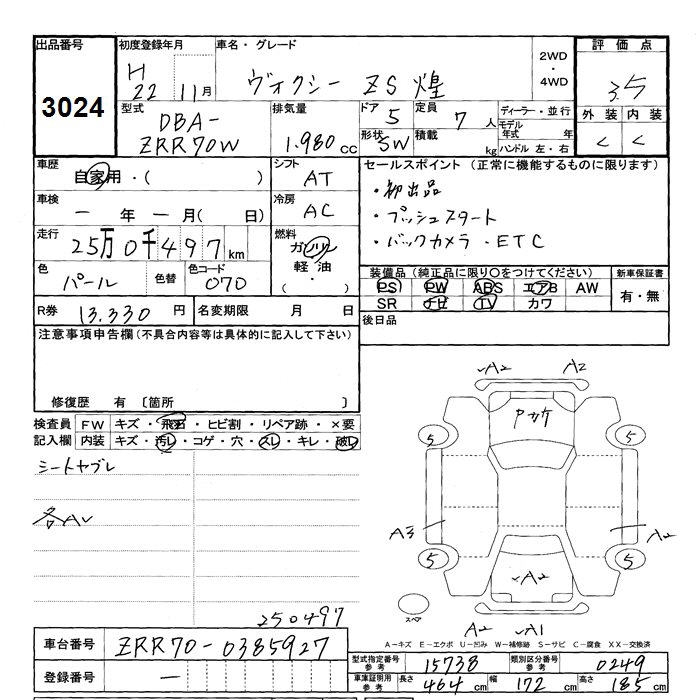 出品番号 初度登録年月 車名・グレード 評価点
3024
H 22 11月 ヴォクシー ZS 煌 2WD ・ 4WD 3.5
型式 排気量 ドア 定員 ディーラー・並行 外装 内装
DBA- 5 7人 モデル年式 年
ZRR70W 1.980cc 形状 SW 積載 kg ハンドル 左・右 C C
車歴 自家用・( ) シフト AT セールスポイント (正常に機能するものに限ります)
・初出品
車検 ー年ー月( 日) 冷房 AC ・プッシュスタート
走行 25万0千497km 燃料 ガソリン ・バックカメラ・ETC
軽油 ・( )
色 パール 色替 色コード 070 装備品 (純正品に限り○をつけてください) 新車保証書
PS PW ABS エアB AW 有・無
SR ナビ TV カワ
R券 13.330円 名変期限 月 日 後日品
注意事項申告欄(不具合内容等は具体的に記入して下さい)
修復歴 有 〔箇所 〕
検査員 FW キズ・飛石・ヒビ割・リペア跡・×要
記入欄 内装 キズ・汚レ・コゲ・穴・スレ・キレ・破レ
シートヤブレ
各AU
250497
A2 A2
Pヤケ
5 5
A3 A2
5 5
A2
スペア
A2 A1
A-キズ E-エクボ U-凹み W-補修跡 S-サビ C-腐食 XX-交換済
車台番号 ZRR70-0385927
型式指定番号 参考 15738 類別区分番号 参考 0249
登録番号 ー
車庫証明用 参考 長さ 464cm 幅 172cm 高さ 185cm